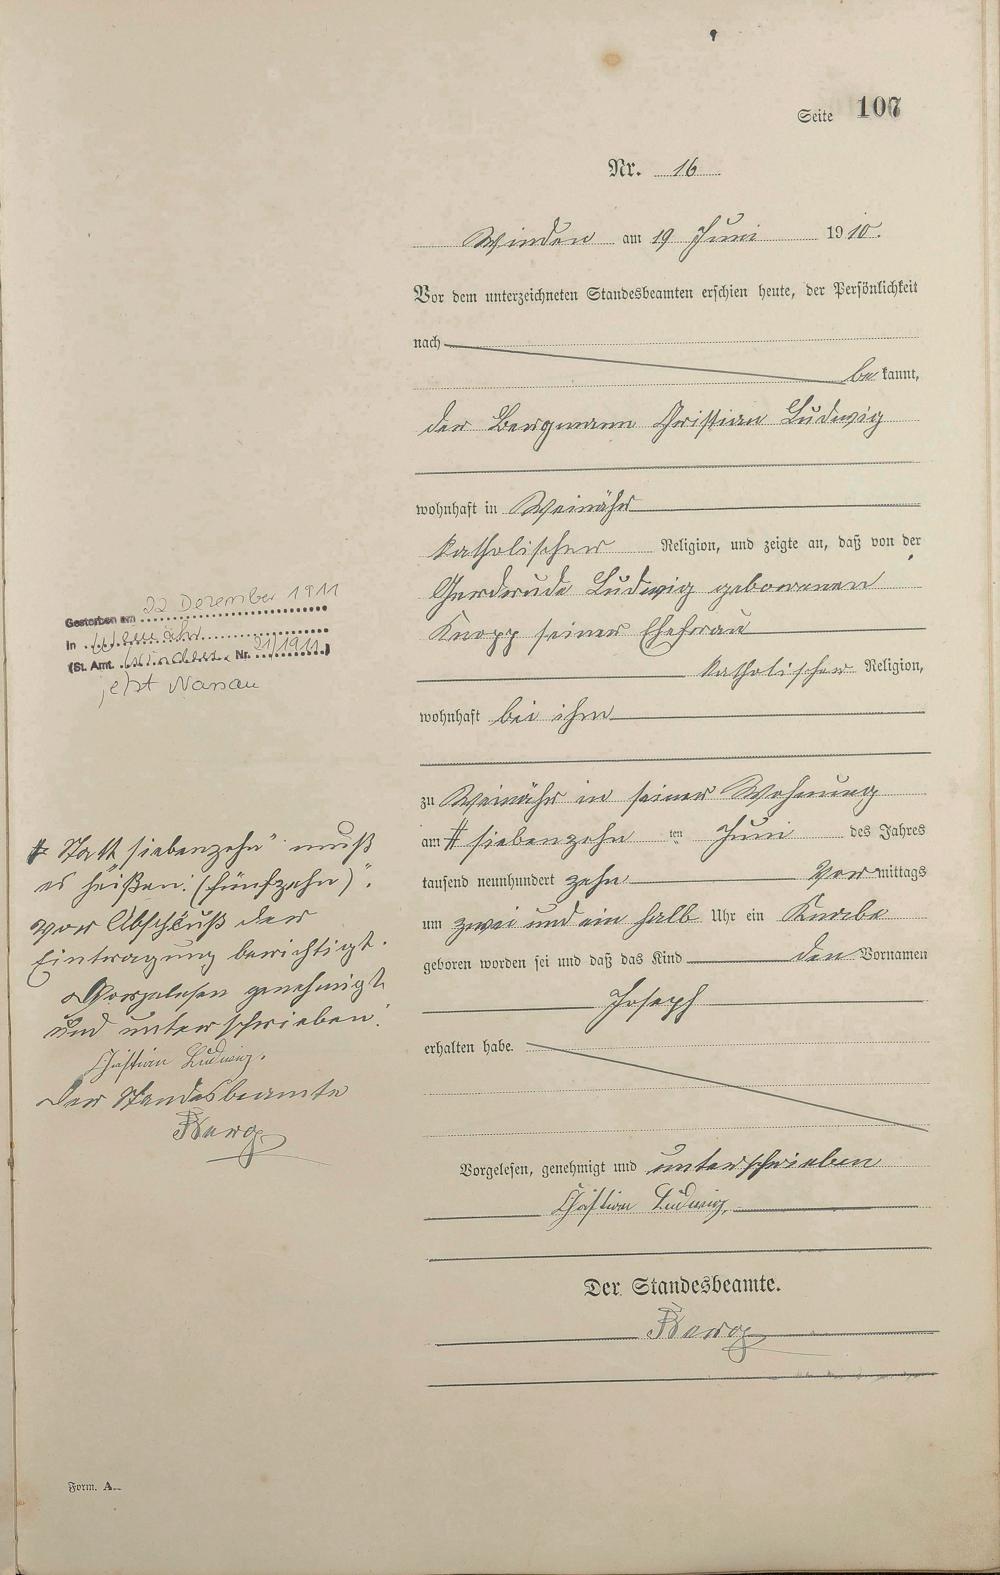 Seite 107
Nr. 16
Winden am 19 Juni 1910.
Vor dem unterzeichneten Standesbeamten erschien heute, der Persönlichkeit
nach
bekannt,
der Bergmann Christian Ludwig
wohnhaft in Weinähr
katholischer Religion, und zeigte an, daß von der
Gerdrude Ludwig geborenen
Knopp seiner Ehefrau
katholischer Religion,
wohnhaft bei ihm
zu Weinähr in seiner Wohnung
am # siebenzehn ten Juni des Jahres
tausend neunhundert zehn Vormittags
um zwei und ein halb Uhr ein Knabe
geboren worden sei und daß das Kind den Vornamen
Joseph
erhalten habe.
Vorgelesen, genehmigt und unterschrieben
Christian Ludwig.
Der Standesbeamte.
Gestorben am 22 Dezember 1911
in Weinähr
(St. Amt. Winden Nr. 21/1911)
jetzt Nassau
# Statt „siebenzehn" muß
es heißen: (fünfzehn)".
vor Abschluß der
Eintragung berichtigt.
Vorgelesen genehmigt
und unterschrieben.
Christian Ludwig.
Der Standesbeamte
Form. A